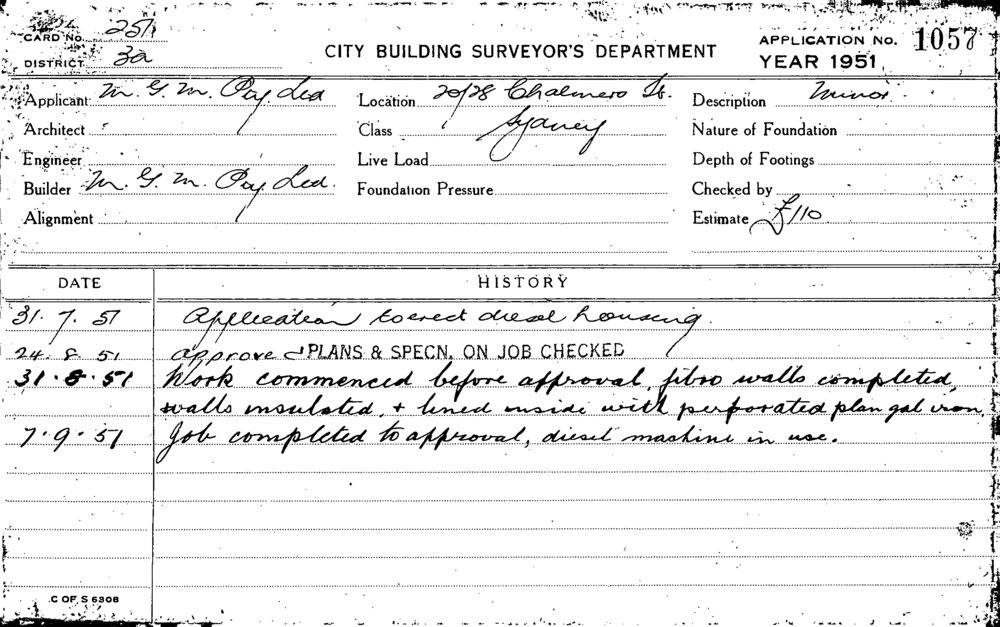 CARD No. 251
DISTRICT 3a
CITY BUILDING SURVEYOR'S DEPARTMENT
APPLICATION No. 1057
YEAR 1951
Applicant M. G. M. Pty. Ltd
Location 20/28 Chalmers St.
Description Minor.
Architect
Class Sydney
Nature of Foundation
Engineer
Live Load
Depth of Footings
Builder M. G. M. Pty. Ltd.
Foundation Pressure
Checked by
Alignment
Estimate £110
DATE HISTORY
31. 7. 51 Application to erect diesel housing.
24. 8. 51 approved PLANS & SPECN. ON JOB CHECKED
31. 8. 51 Work commenced before approval, fibro walls completed,
walls insulated, + lined inside with perforated plan gal iron,
7. 9. 51 Job completed to approval, diesel machine in use.
C OF S 6308